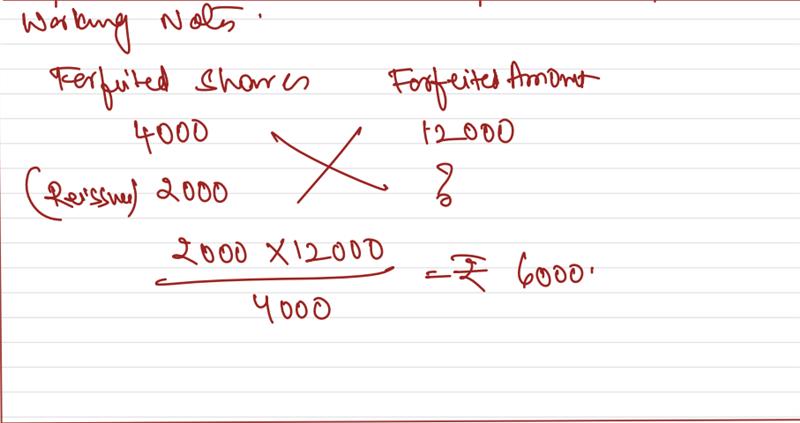 Working Notes.
Forfuited Shares Forfeited Amount
4000 12000
(Reissue) 2000 ?
2000 X 12000
4000
= ₹ 6000.